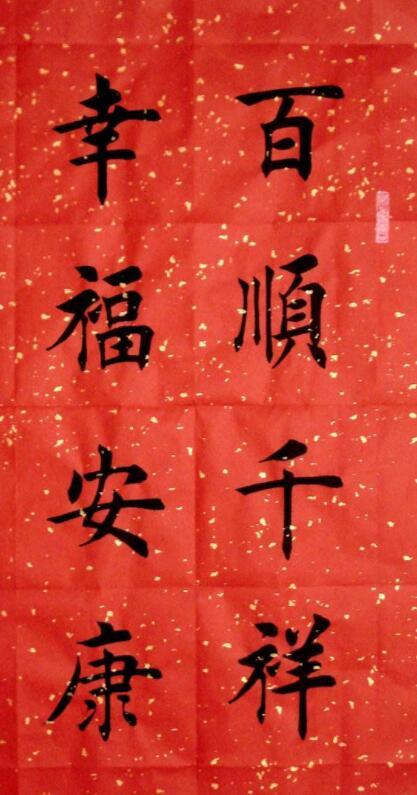 百順千祥
幸福安康